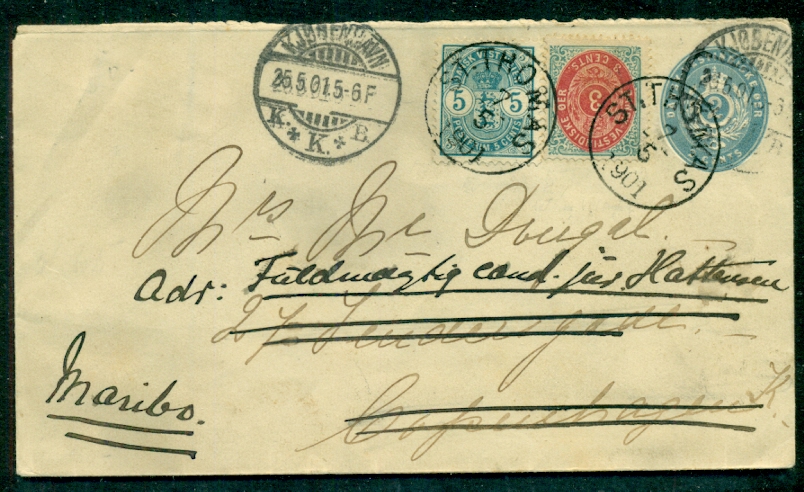 KJØBENHAVN
25.5.01.5-6F
K. * K. * B.
5 5
ST. THOMAS
7
5
1901
VESTINDISKE ØER
3 CENTS.
3
ST. THOMAS
7
5
1901
KJØBENH
Mrs Mc Dougal.
Adr: Fuldmægtig cand. jur. Hattensen
27 Sendersgade.
Copenhagen K.
Maribo.